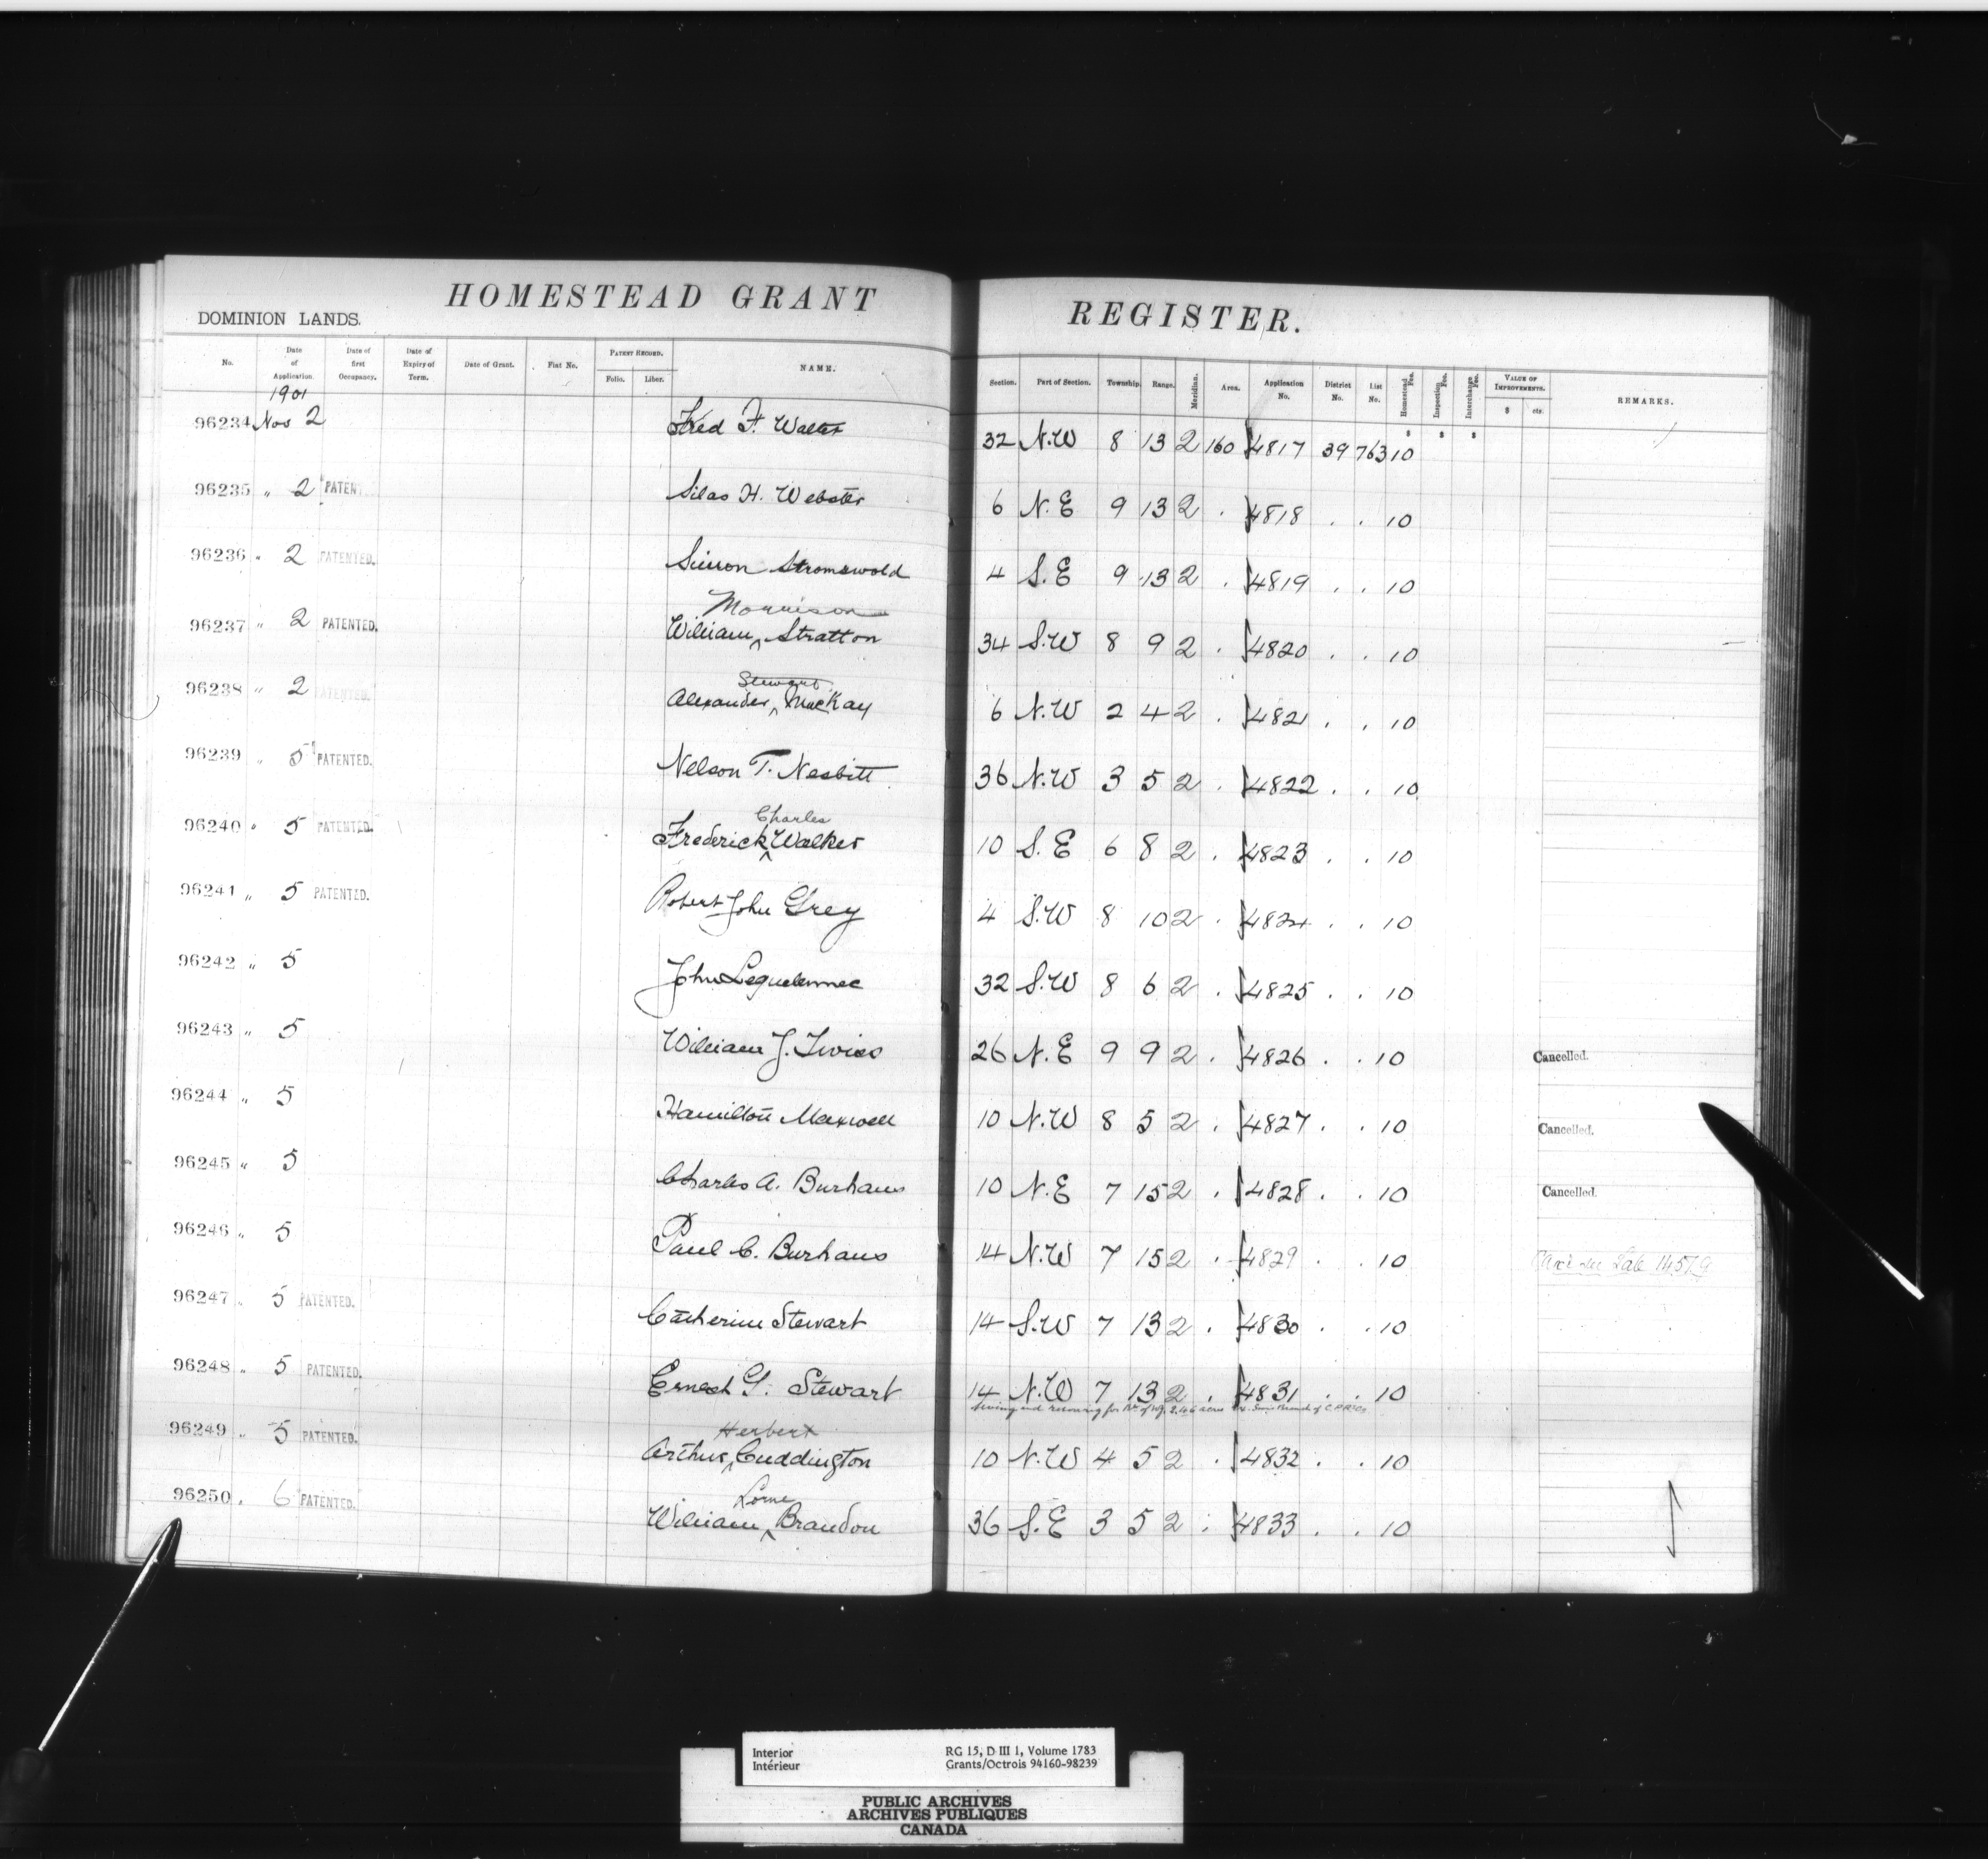 HOMESTEAD GRANT REGISTER.
DOMINION LANDS.
No. Date of Application. Date of first Occupancy. Date of Expiry of Term. Date of Grant. Fiat No. PATENT RECORD. Folio. Liber. NAME. Section. Part of Section. Township. Range. Meridian. Area. Application No. District No. List No. Homestead Fee. Inspection Fee. Interchange Fee. VALUE OF IMPROVEMENTS. $ cts. REMARKS.
1901
96234 Nov 2 Fred F. Walter 32 N.W 8 13 2 160 4817 39 763 10
96235 " 2 PATEN Silas H. Webster 6 N.E 9 13 2 . 4818 . . 10
96236 " 2 PATENTED. Simon Stromswold 4 S.E 9 13 2 . 4819 . . 10
Morrison
96237 " 2 PATENTED. William ‸ Stratton 34 S.W 8 9 2 . 4820 . . 10
Stewart
96238 " 2 PATENTED. Alexander ‸ MacKay 6 N.W 2 4 2 . 4821 . . 10
96239 " 5 PATENTED. Nelson T. Nesbitt 36 N.W 3 5 2 . 4822 . . 10
Charles
96240 " 5 PATENTED. Frederick ‸ Walker 10 S.E 6 8 2 . 4823 . . 10
96241 " 5 PATENTED. Robert John Grey 4 S.W 8 10 2 . 4824 . . 10
96242 " 5 John Lequelennec 32 S.W 8 6 2 . 4825 . . 10
96243 " 5 William J. Twiss 26 N.E 9 9 2 . 4826 . . 10 Cancelled.
96244 " 5 Hamilton Maxwell 10 N.W 8 5 2 . 4827 . . 10 Cancelled.
96245 " 5 Charles A. Burhans 10 N.E 7 15 2 . 4828 . . 10 Cancelled.
96246 " 5 Paul C. Burhans 14 N.W 7 15 2 . 4829 . . 10 Sale 14579
96247 " 5 PATENTED. Catherine Stewart 14 S.W 7 13 2 . 4830 . . 10
96248 " 5 PATENTED. Ernest G. Stewart 14 N.W 7 13 2 . 4831 . . 10
Herbert
96249 " 5 PATENTED. Arthur ‸ Cuddington 10 N.W 4 5 2 . 4832 . . 10
Lorne
96250 " 6 PATENTED. William ‸ Brandon 36 S.E 3 5 2 . 4833 . . 10
Interior RG 15, D III 1, Volume 1783
Intérieur Grants/Octrois 94160-98239
PUBLIC ARCHIVES
ARCHIVES PUBLIQUES
CANADA